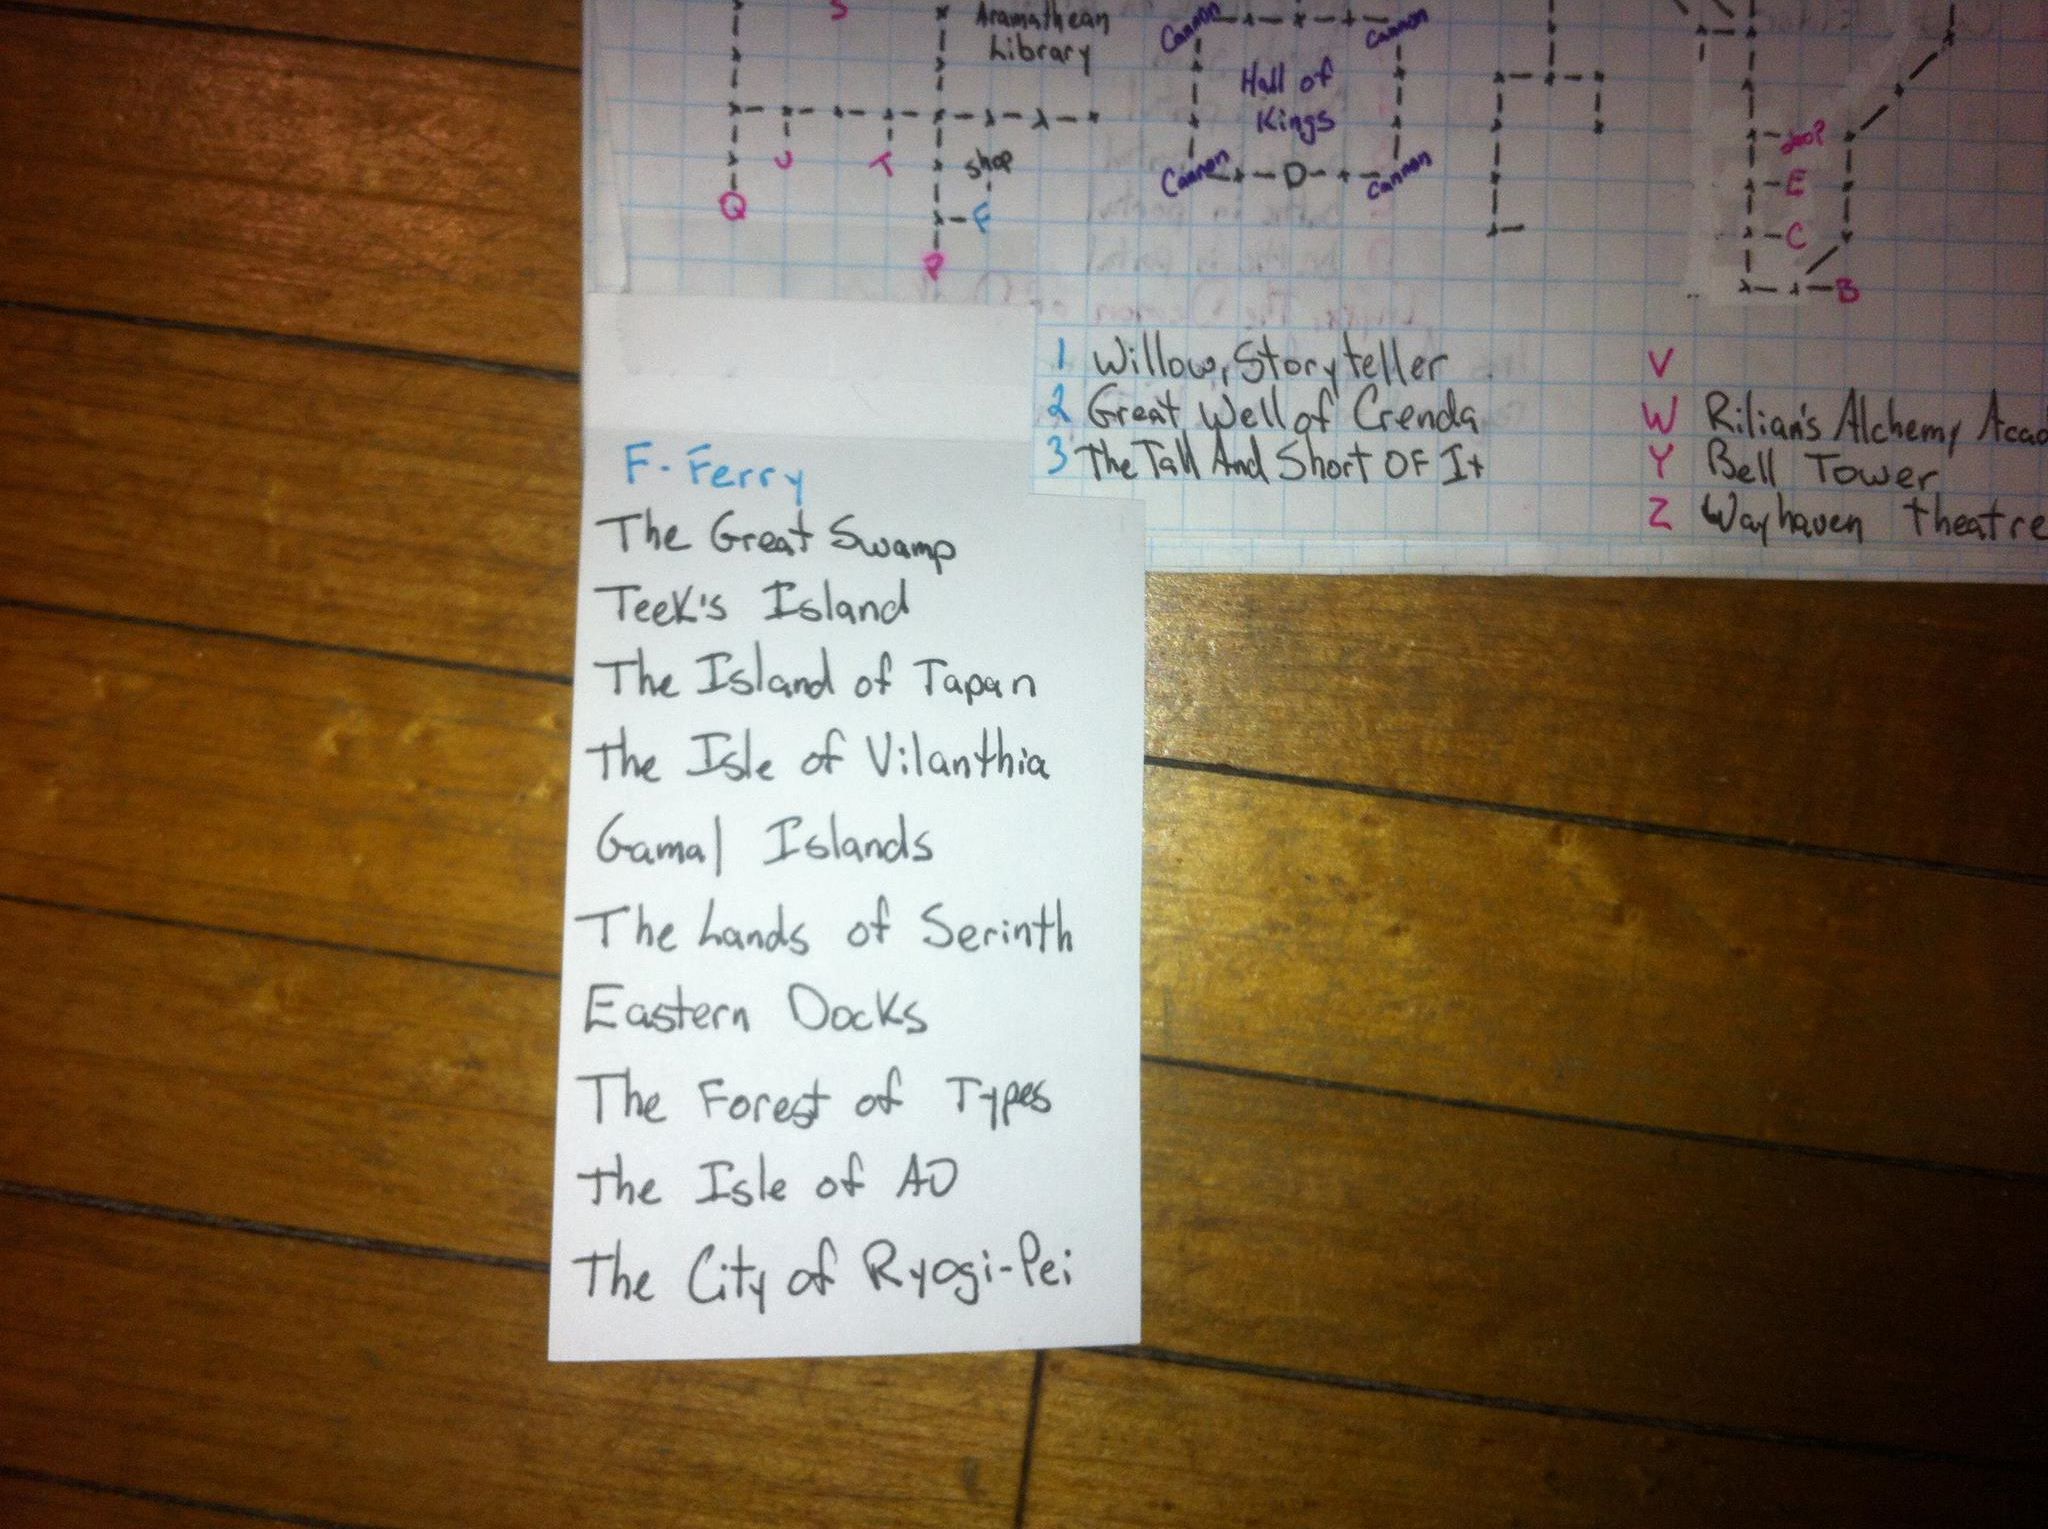 S
Aramathean
Library
Cannon
Cannon
Hall of
Kings
Cannon
D
Cannon
J
T
shop
Q
F
P
E
C
B
1 Willow, Storyteller
2 Great Well of Crenda
3 The Tall And Short Of It
V
W Rilian's Alchemy Acad
Y Bell Tower
Z Wayhaven Theatre
F - Ferry
The Great Swamp
Teek's Island
The Island of Tapan
The Isle of Vilanthia
Gamal Islands
The Lands of Serinth
Eastern Docks
The Forest of Types
The Isle of AO
The City of Ryogi-Pei